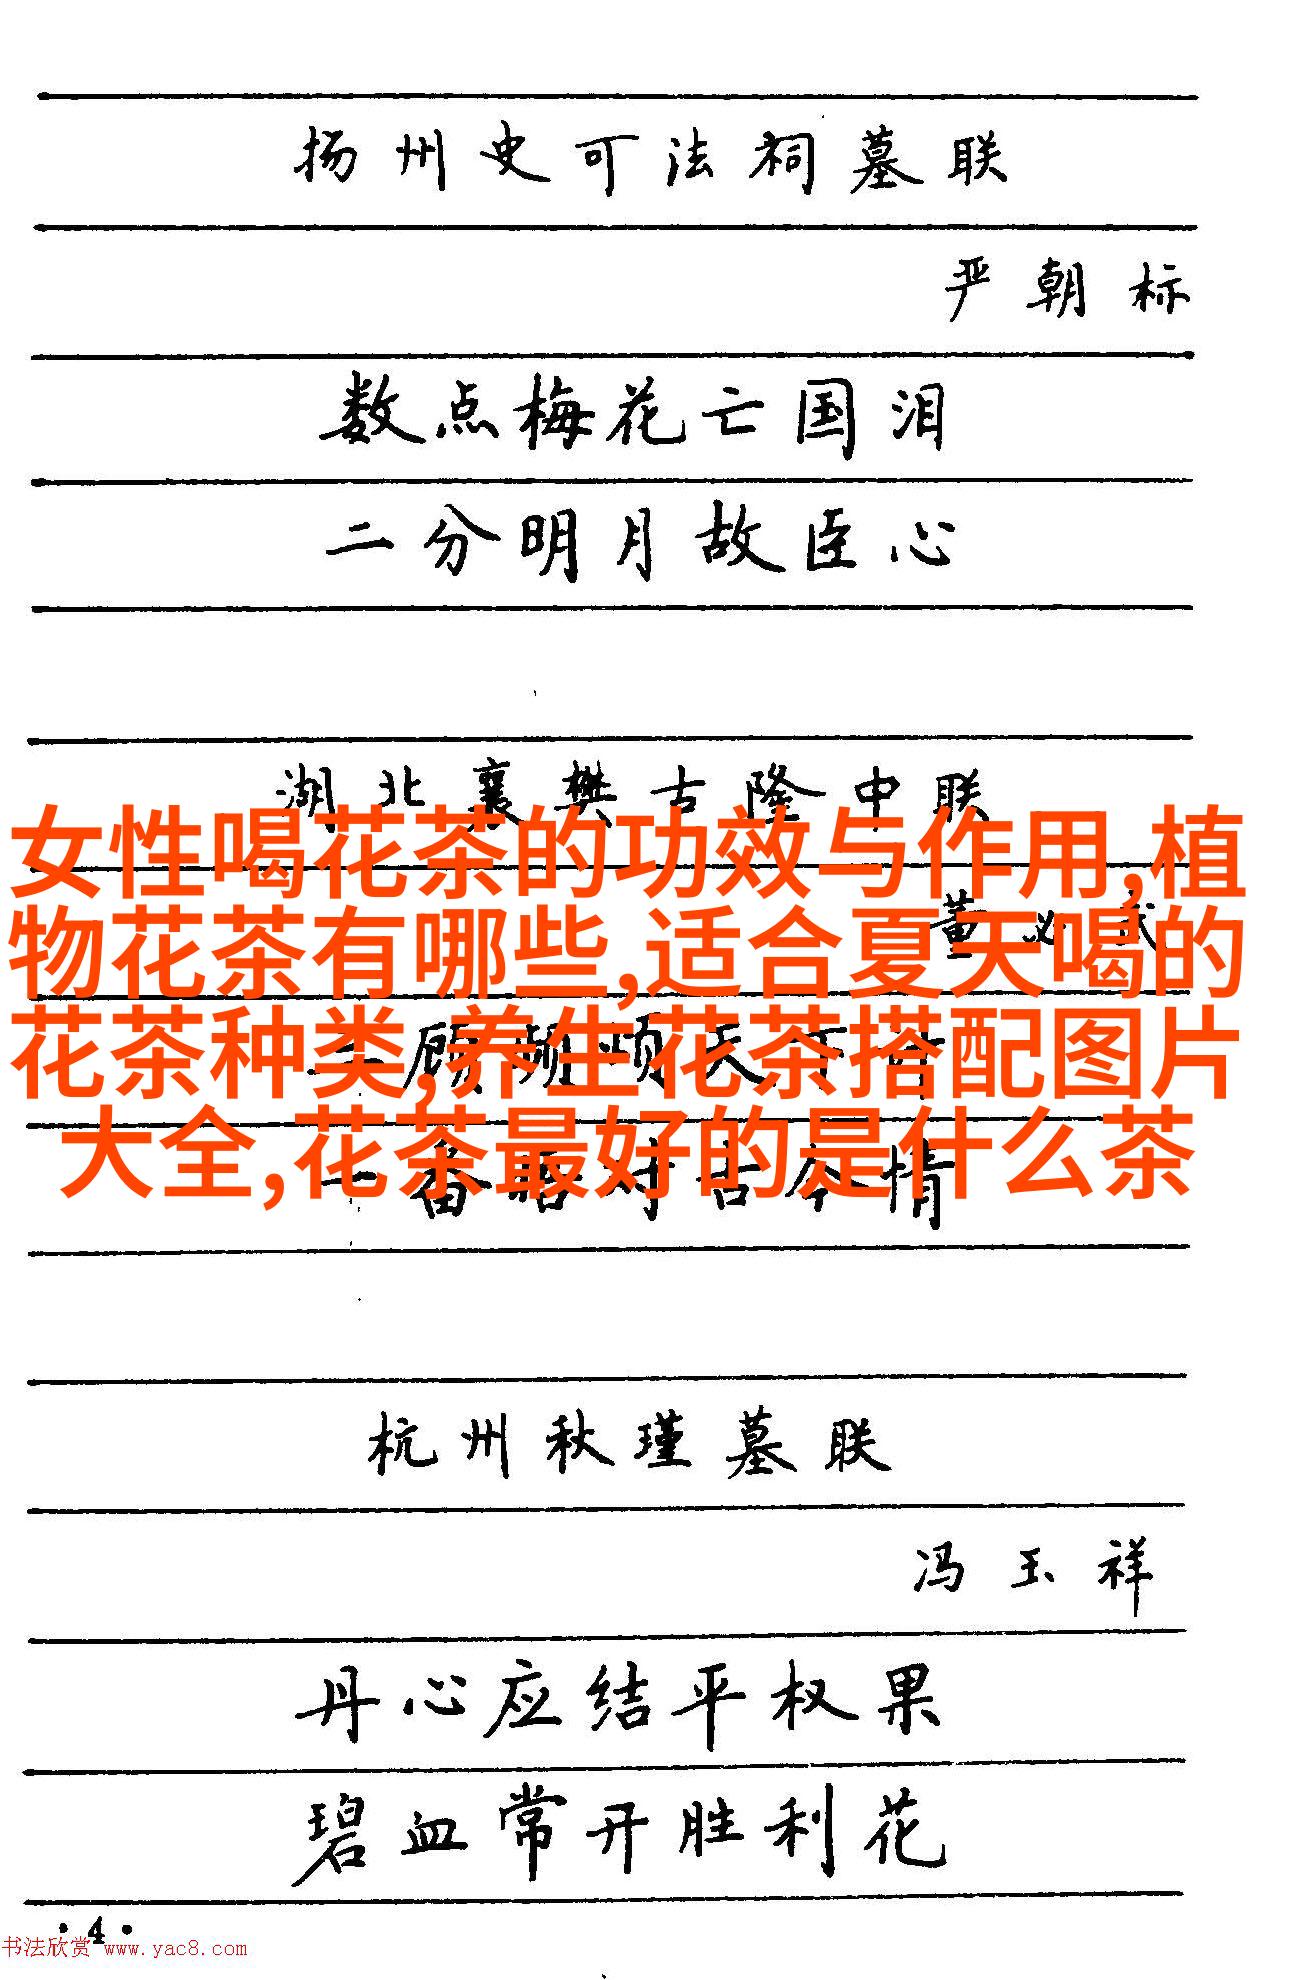 扬州史可法祠墓联
严朝标
数点梅花亡国泪
二分明月故臣心
湖北襄樊古隆中联
董必武
女性喝花茶的功效与作用,植
物花茶有哪些,适合夏天喝的
花茶种类,养生花茶搭配图片
大全,花茶最好的是什么茶
三顾频烦天下计
一番晤对古今情
杭州秋瑾墓联
冯玉祥
丹心应结平权果
碧血常开胜利花
·4·
书法欣赏 www.yac8.com